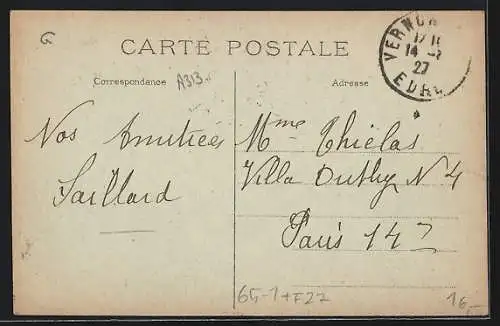 G
CARTE POSTALE
Correspondance
A313.
Adresse
VERNON
14
27
EURE
Nos Amitiés
Saillard
Mme Thiélas
Villa Duthy N 4
Paris 14
65-1+F27
16,-